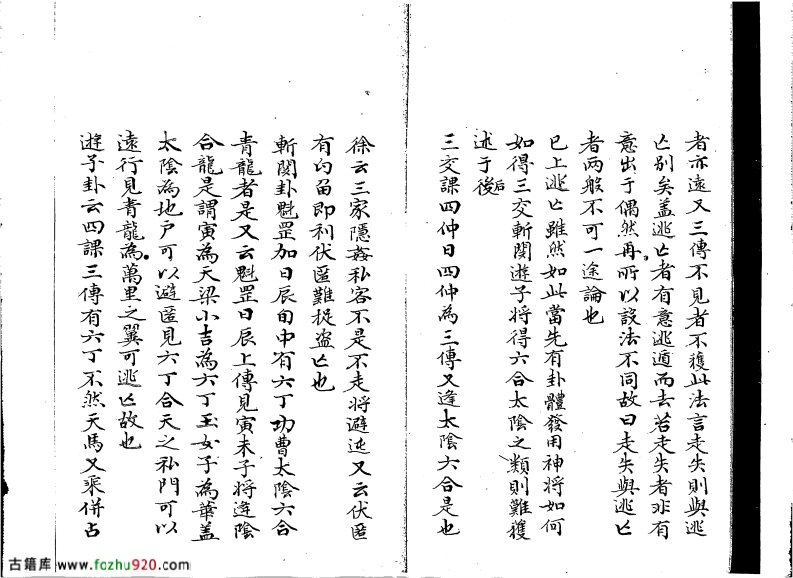 者亦遠又三傳不見者不獲此法言走失則與逃
亡別矣盖逃亡者有意逃遁而去若走失者非有
意出于偶然再所以設法不同故曰走失與逃亡
者两般不可一途論也
已上逃亡雖然如此當先有卦體發用神將如何
如得三交斬関遊子將得六合太陰之類則難獲
述于後后
三交課四仲日四仲為三傳又逢太陰六合是也
徐云三家隱姦私容不是不走將避迯又云伏匿
有勾留即利伏匿難捉盗亡也
斬関卦魁罡加日辰旬中有六丁功曹太陰六合
青龍者是又云魁罡日辰上傳見寅未子將逢陰
合龍是謂寅為天梁小吉為六丁玉女子為華盖
太陰為地戸可以避匿見六丁合天之私門可以
遠行見青龍為萬里之翼可逃亡故也
遊子卦云四課三傳有六丁不然天馬又乘併占
古籍库 www.fozhu920.com